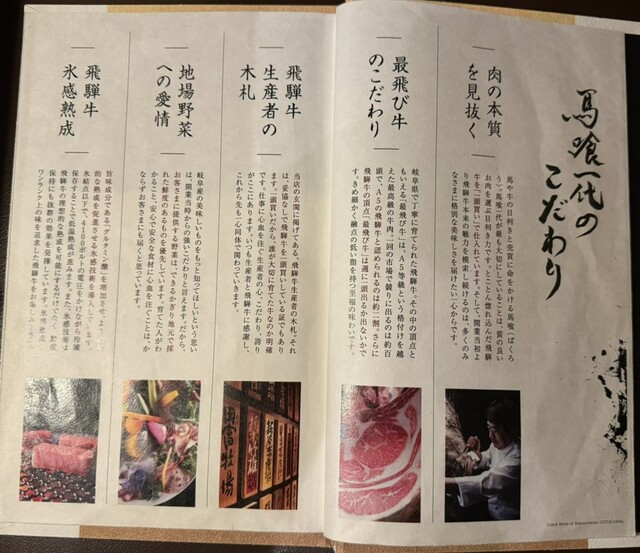 馬喰一代の
こだわり
肉の本質
を見抜く
馬や牛の目利きと売買に命をかける馬喰（ばくろ
う）。馬喰一代が最も大切にしていることは、質の良い
お肉を選ぶ目利き力です。とことん惚れ込んだ飛騨
牛を「一頭買い」で仕入れています。そして、開業当初よ
り飛騨牛本来の魅力を模索し続けるのは、多くのみ
なさまに格別な美味しさを届けたい一心からです。
最飛び牛
のこだわり
岐阜県で丁寧に育てられた飛騨牛。その中の頂点と
もいえる「最飛び牛」は、A5等級という格付けを越
えた最高級の牛肉。一回の市場で競りに出るのは約百
頭で、A5の飛騨牛と認められるのは約二割、さらに
飛騨牛の頂点「最飛び牛」は週に一頭出るか出ないかで
す。きめ細かく融点の低い脂を持つ至福の味わいです。
飛騨牛
生産者の
木札
当店の玄関に掲げてある、飛騨牛生産者の木札。それ
は、妥協なしで飛騨牛を一頭買いしている証でもあり
ます。一頭買いだから、誰が大切に育てた牛なのか明確
です。仕事に心血を注ぐ生産者の心、こだわり、誇り
がここにあります。いつも生産者と飛騨牛に感謝し、
これからも心一同体で関わっていきます。
地場野菜
への愛情
岐阜産の美味しいものをもっと知ってほしいという思い
は、開業当時からの強いこだわりと言えます。だから、
お客さまに提供する野菜は、できるかぎり地元で採
れた鮮度のあるものを優先しています。育てた人がわ
かること、安心で安全な食材に心血を注ぐことは、か
ならずお客さまにも届くと思っています。
飛騨牛
氷感熟成
旨味成分である「グルタミン酸」を増加させ、より
的な熟成を促進させる氷感技術を導入して
00ボルトの電圧をかけながら冷凍
保存することで低温熟成が進みます。また、氷感技術は
飛騨牛の理想的な熟成を可能にするだけでなく、鮮度
保持にも抜群の効果を発揮しています。
ワンランク上の味を追求した飛騨牛をお楽しみ
飛富牧場